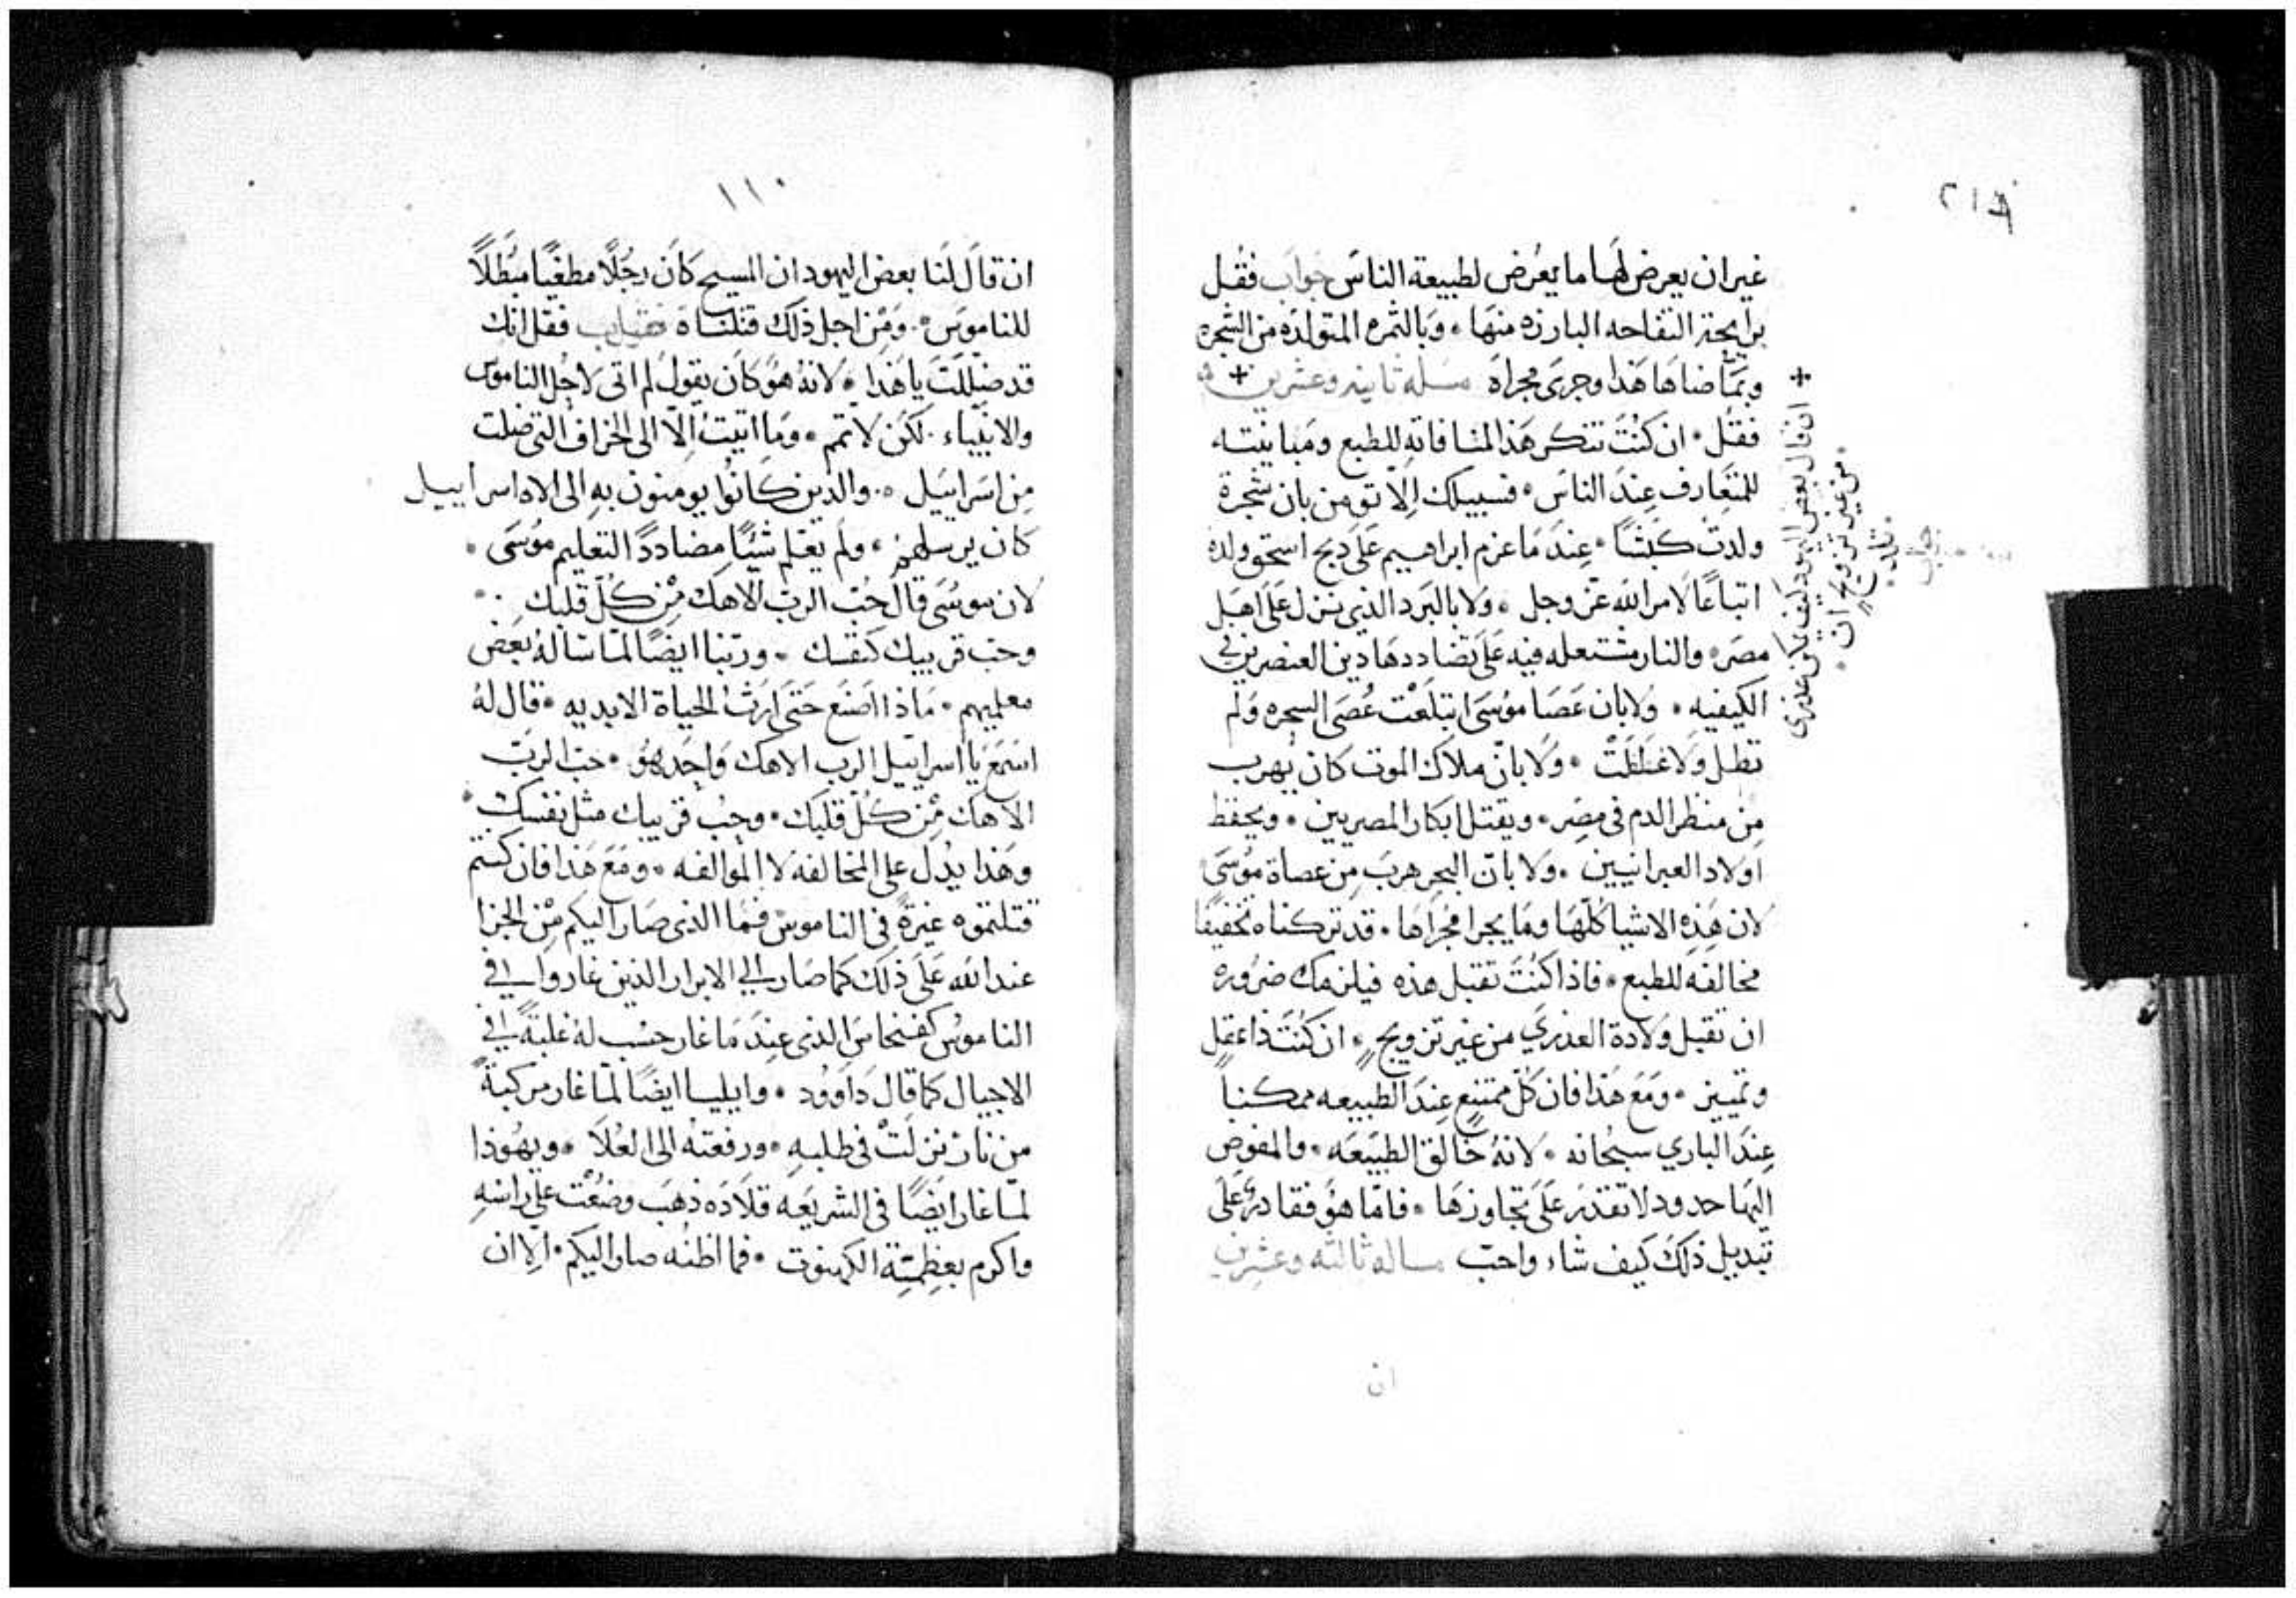 غير ان يعرض لها ما يعرض لطبيعة الناس جواب فقل
برايحة التفاحه البارزه منها ۰ وبالثمره المتولده من الشجره
وبما ضاهاها هذا وجرى مجراه مسله ثانيه وعشرين +
فقل ۰ ان كنت تنكر هذا لمنافاته للطبع ومباينته
للمتعارف عند الناس ۰ فسبيلك الا تومن بان شجرة
ولدت كبشا ۰ عند ما عزم ابراهيم على دبح اسحق ولده
اتباعا لامر الله عز وجل ۰ ولا بالبرد الذي نزل على اهل
مصر ۰ والنار مشتعله فيه على تضادد هادين العنصرين في
الكيفيه ۰ ولا بان عصا موسى ابتلعت عصى السحره ولم
تطل ولا غلظت ۰ ولا بان ملاك الموت كان يهرب
من منظر الدم في مصر ۰ ويقتل ابكار المصريين ۰ ويحفظ
اولاد العبرانيين ۰ ولا بان البحر هرب من عصاة موسى
لان هذه الاشيا كلها وما يجرا مجراها ۰ قد تركناه تخفيفا
مخالفة للطبع ۰ فاذا كنت تقبل هذه فيلزمك ضروره
ان تقبل ولادة العذري من غير تزويج ۰ ان كنت ذا عقل
وتمييز ۰ ومع هذا فان كل ممتنع عند الطبيعه ممكنا
عند الباري سبحانه ۰ لانه خالق الطبيعه ۰ والمفوض
اليها حدود لا تقدر على تجاوزها ۰ فاما هو فقادر على
تبديل ذلك كيف شاء واحب مساله ثالثه وعشرين
ان
+ ان قال بعض اليهود كيف يمكن عذرى
من غير تزويج ان
تلد
جواب
١١٠
ان قال لنا بعض اليهود ان المسيح كان رجلا مطغيا مبطلا
للناموس ۰ ومن اجل ذلك قتلناه فقل انك
قد ضللت يا هذا ۰ لانه هو كان يقول لم اتى لاحل الناموس
والانبياء ۰ لكن لاتمم ۰ وما اتيت الا الى الخراف التي ضلت
من اسراييل ۰ والدين كانوا يومنون به الى الاه اسراييل
كان يرسلهم ۰ ولم يعلم شيئا مضاددا لتعليم موسى ۰
لان موسى قال حب الرب الاهك من كل قلبك ۰
وحب قريبك كنفسك ۰ وربنا ايضا لما ساله بعض
معلميهم ۰ ماذا اصنع حتى ارث الحياة الابديه ۰ قال له
اسمع يا اسراييل الرب الاهك واحد هو ۰ حب الرب
الاهك من كل قلبك ۰ وحب قريبك مثل نفسك ۰
وهذا يدل على المخالفه لا الموالفه ۰ ومع هذا فان كنتم
قتلتموه غيرة في الناموس فما الذي صار اليكم من الجزا
عند الله على ذلك كما صار الي الابرار الذين غاروا في
الناموس كفنحاس الذي عند ما غار حسب له غلبة في
الاجيال كما قال داوود ۰ وايليا ايضا لما غار مركبة
من نار نزلت في طلبه ۰ ورفعته الى العلا ۰ ويهوذا
لما غار ايضا في الشريعه قلاده ذهب وضعت على راسه
واكرم بعظمة الكهنوت ۰ فما اظنه صار اليكم ۰ الا ان